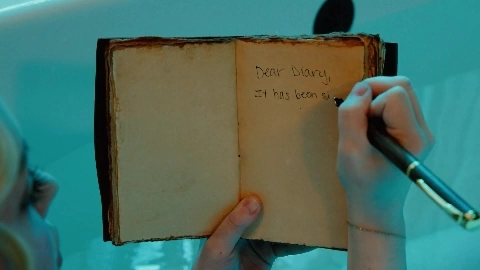 Dear Diary,
It has been